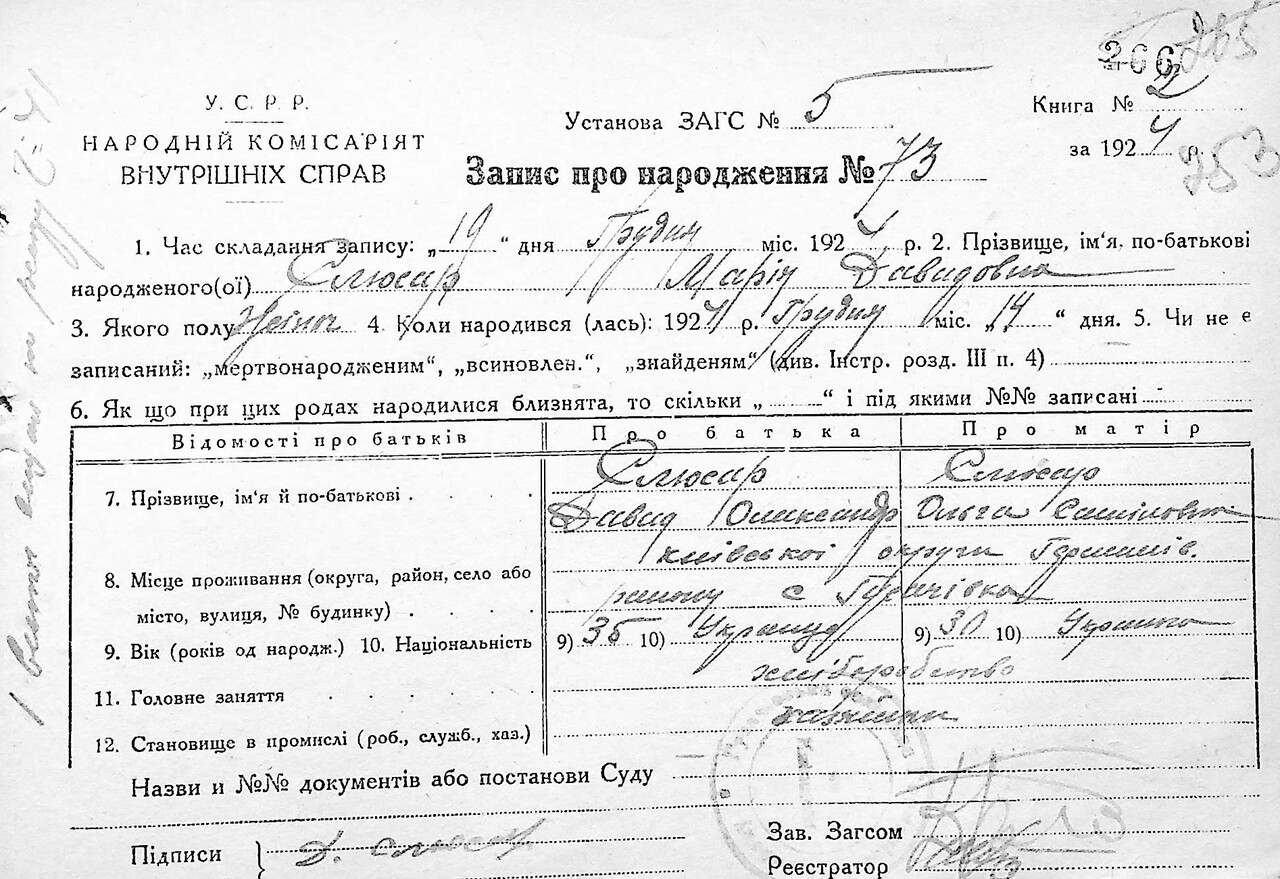 266 265
У. С. Р. Р.
НАРОДНІЙ КОМІСАРІЯТ
ВНУТРІШНІХ СПРАВ
Установа ЗАГС № 5
Книга № 2
за 1924 р.
253
Запис про народження № 73
1. Час складання запису: „19“ дня Грудня міс. 1924 р. 2. Прізвище, ім'я, по-батькові
народженого(ої) Слюсар Марія Давидовна
3. Якого полу Жіноч 4. Коли народився (лась): 1924 р. Грудня міс. „14“ дня. 5. Чи не є
записаний: „мертвонародженим“, „всиновлен.“, „знайденям“ (див. Інстр. розд. III п. 4)
6. Як що при цих родах народилися близнята, то скільки „ “ і під якими №№ записані
Відомості про батьків Про батька Про матір
7. Прізвище, ім'я й по-батькові Слюсар Слюсар
Давид Олександр Ольга
київської округи
8. Місце проживання (округа, район, село або
місто, вулиця, № будинку) району с
9. Вік (років од народж.) 10. Національність 9) 35 10) Українць 9) 30 10) Українка
11. Головне заняття хліборобство
12. Становище в промислі (роб., служб., хаз.) хазяїни
Назви и №№ документів або постанови Суду
Підписи Д. Слюсар
Зав. Загсом
Реєстратор